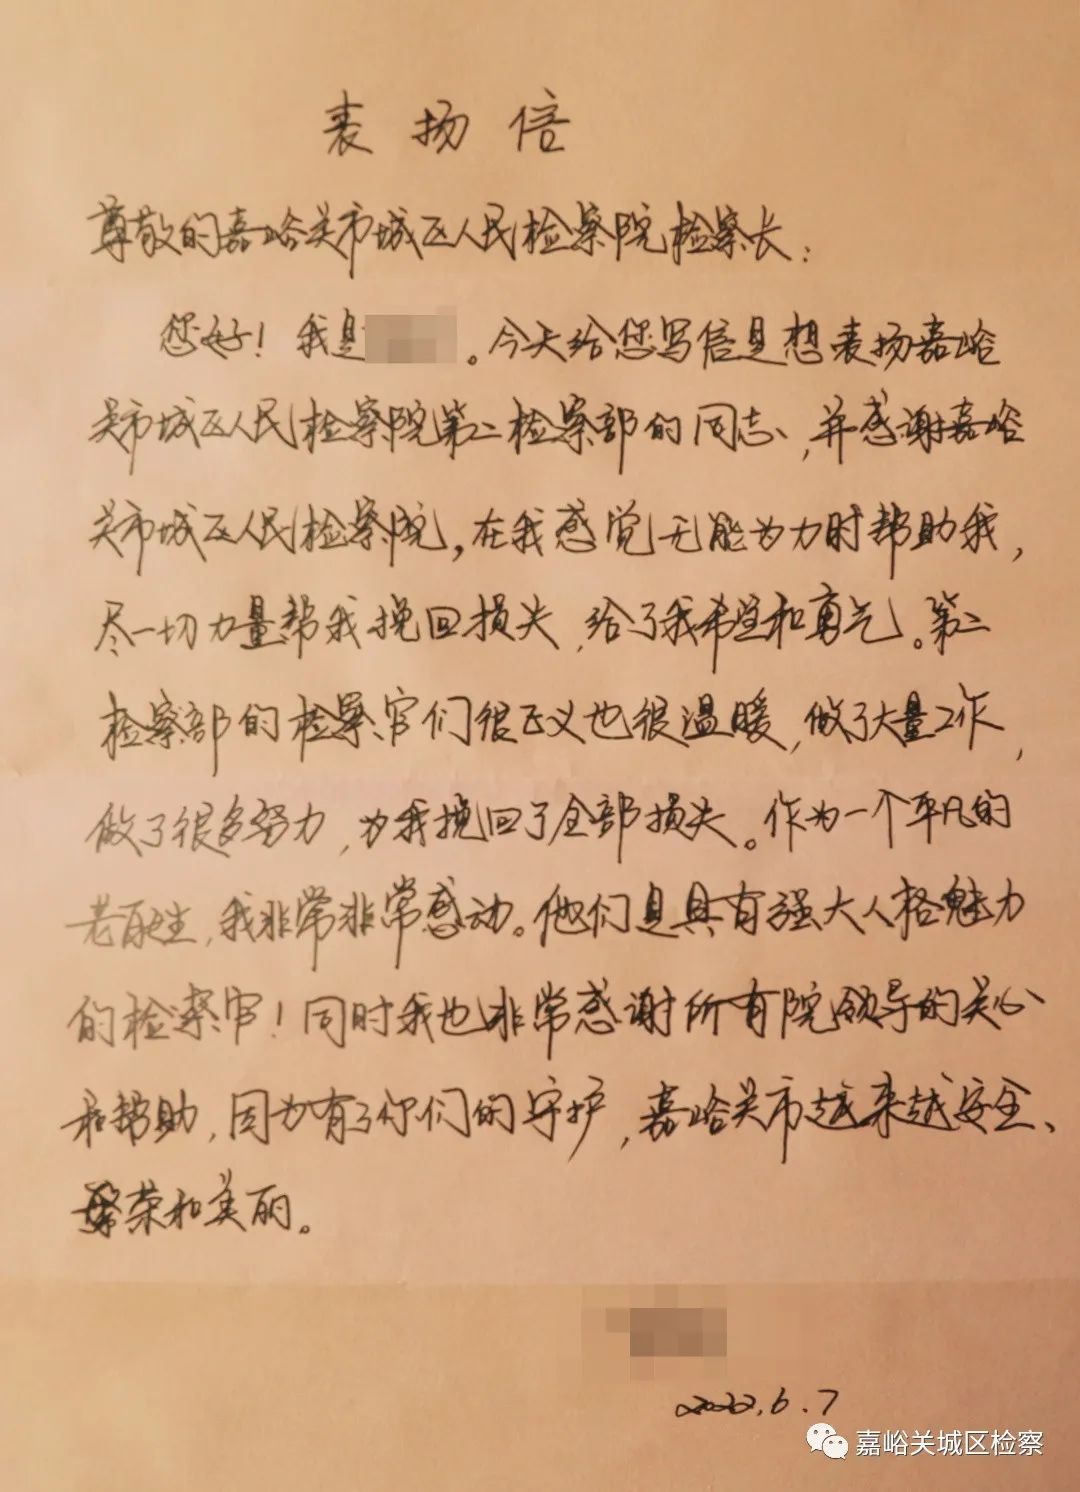 表扬信
尊敬的嘉峪关市城区人民检察院检察长：
您好！我是 。今天给您写信是想表扬嘉峪
关市城区人民检察院第二检察部的同志，并感谢嘉峪
关市城区人民检察院，在我感觉无能为力时帮助我，
尽一切力量帮我挽回损失，给了我希望和勇气。第二
检察部的检察官们很正义也很温暖，做了大量工作，
做了很多努力，为我挽回了全部损失。作为一个平凡的
老百姓，我非常非常感动。他们是具有强大人格魅力
的检察官！同时我也非常感谢所有院领导的关心
和帮助，因为有了你们的守护，嘉峪关市越来越安全、
繁荣和美丽。
2022.6.7
嘉峪关城区检察